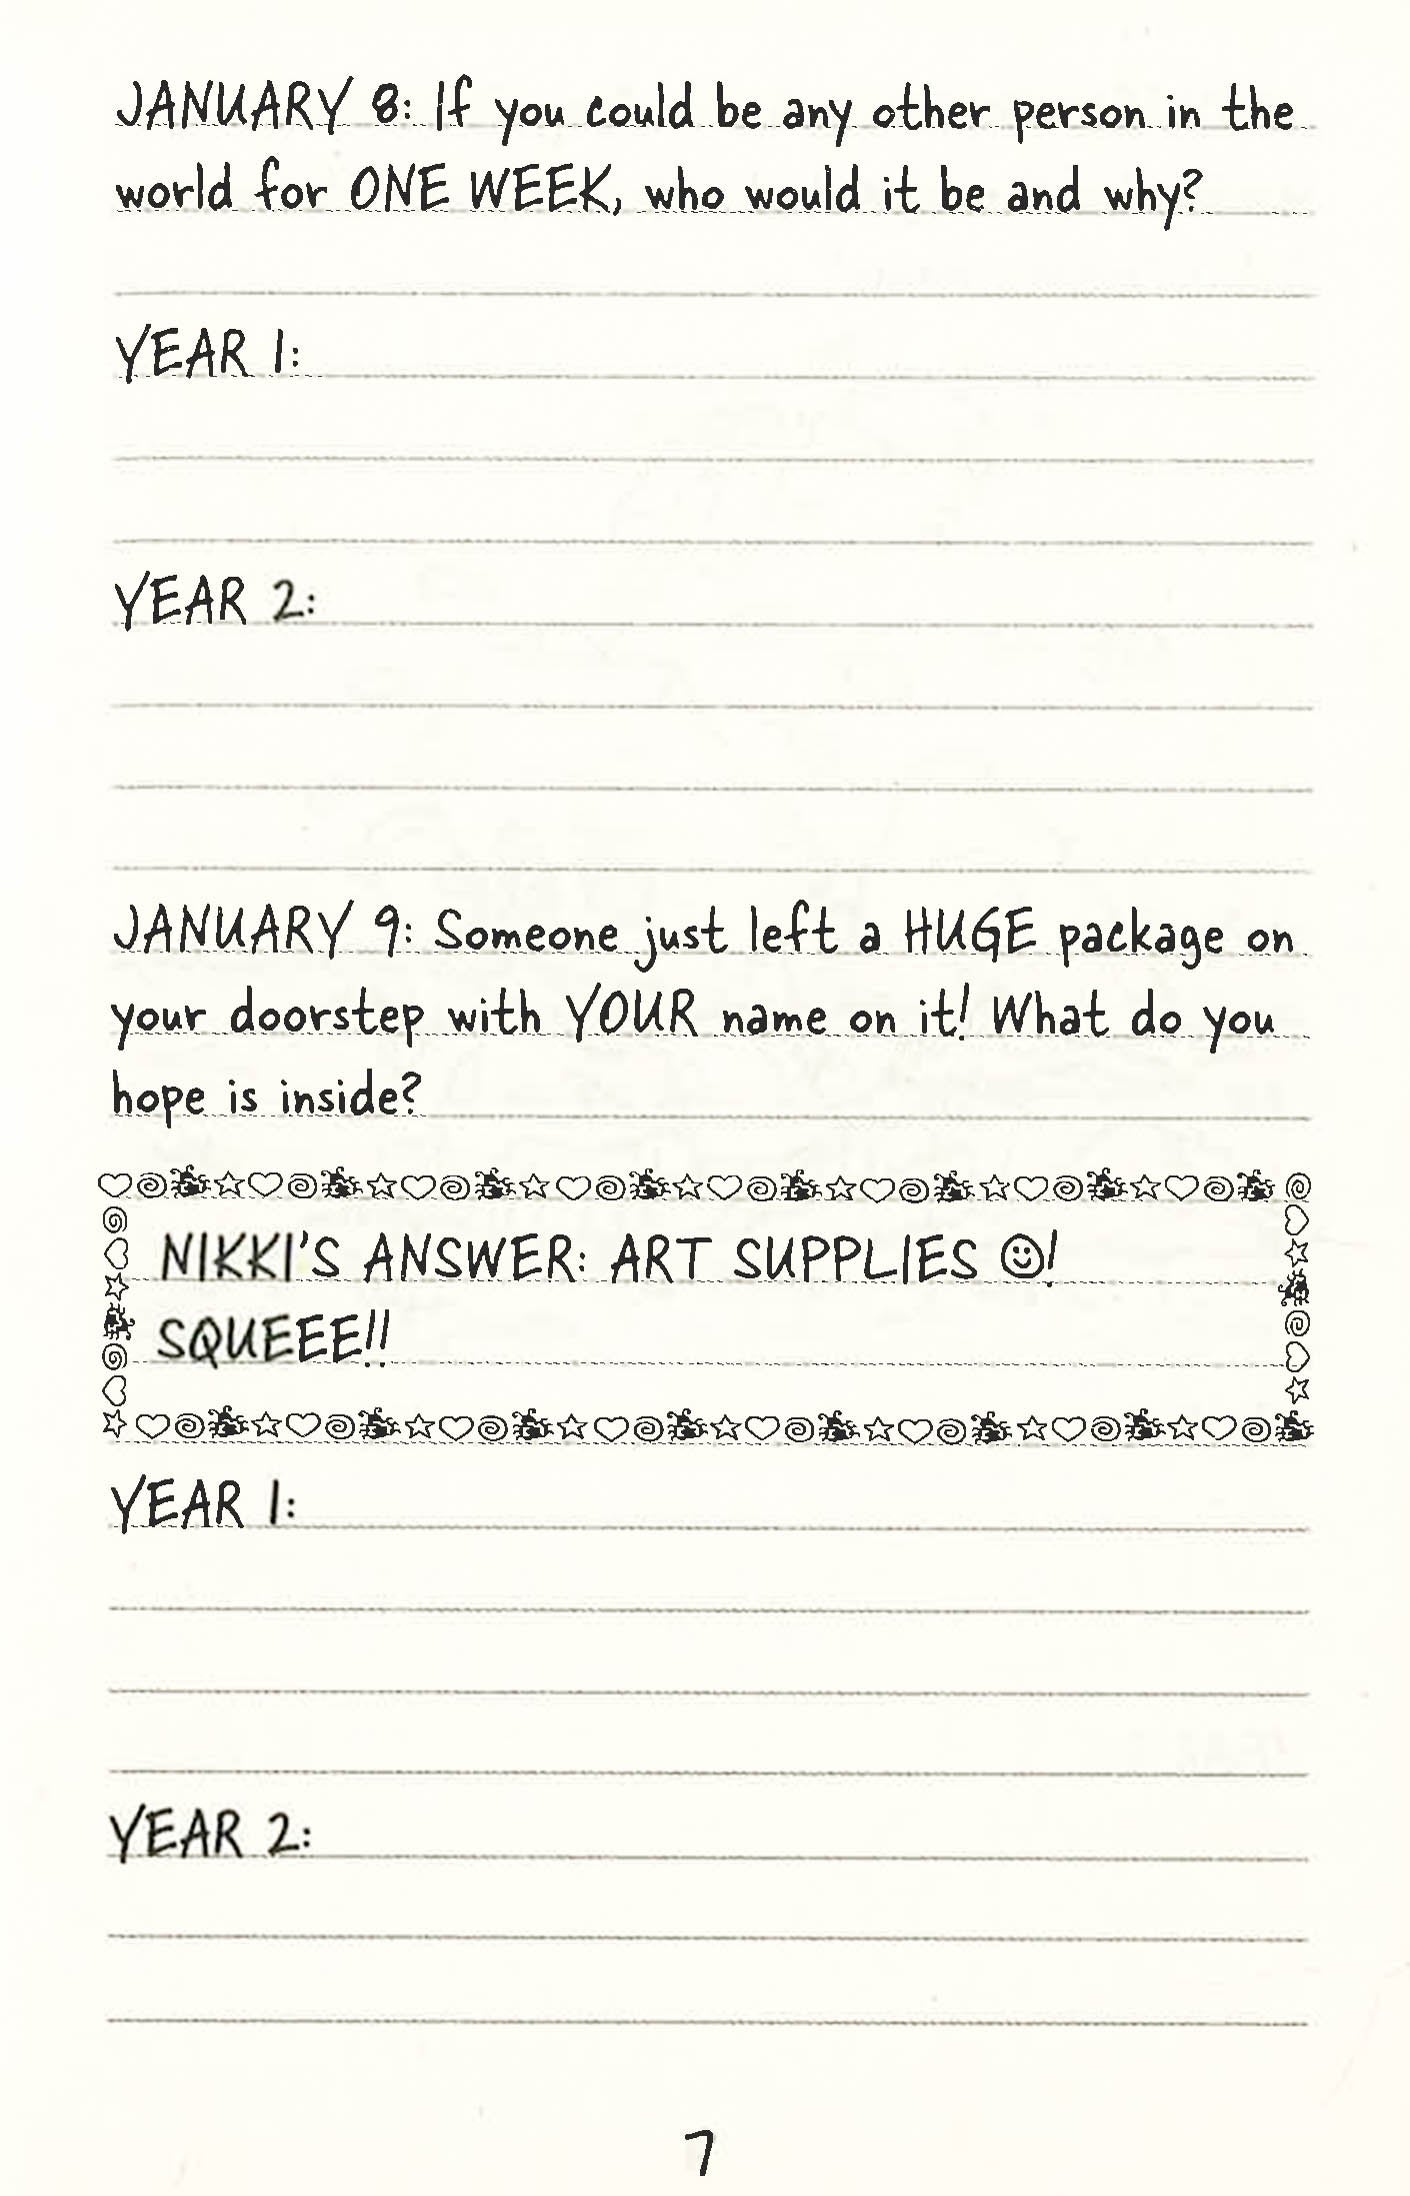 JANUARY 8: If you could be any other person in the
world for ONE WEEK, who would it be and why?
YEAR 1:
YEAR 2:
JANUARY 9: Someone just left a HUGE package on
your doorstep with YOUR name on it! What do you
hope is inside?
NIKKI'S ANSWER: ART SUPPLIES ☺!
SQUEEE!!
YEAR 1:
YEAR 2:
7